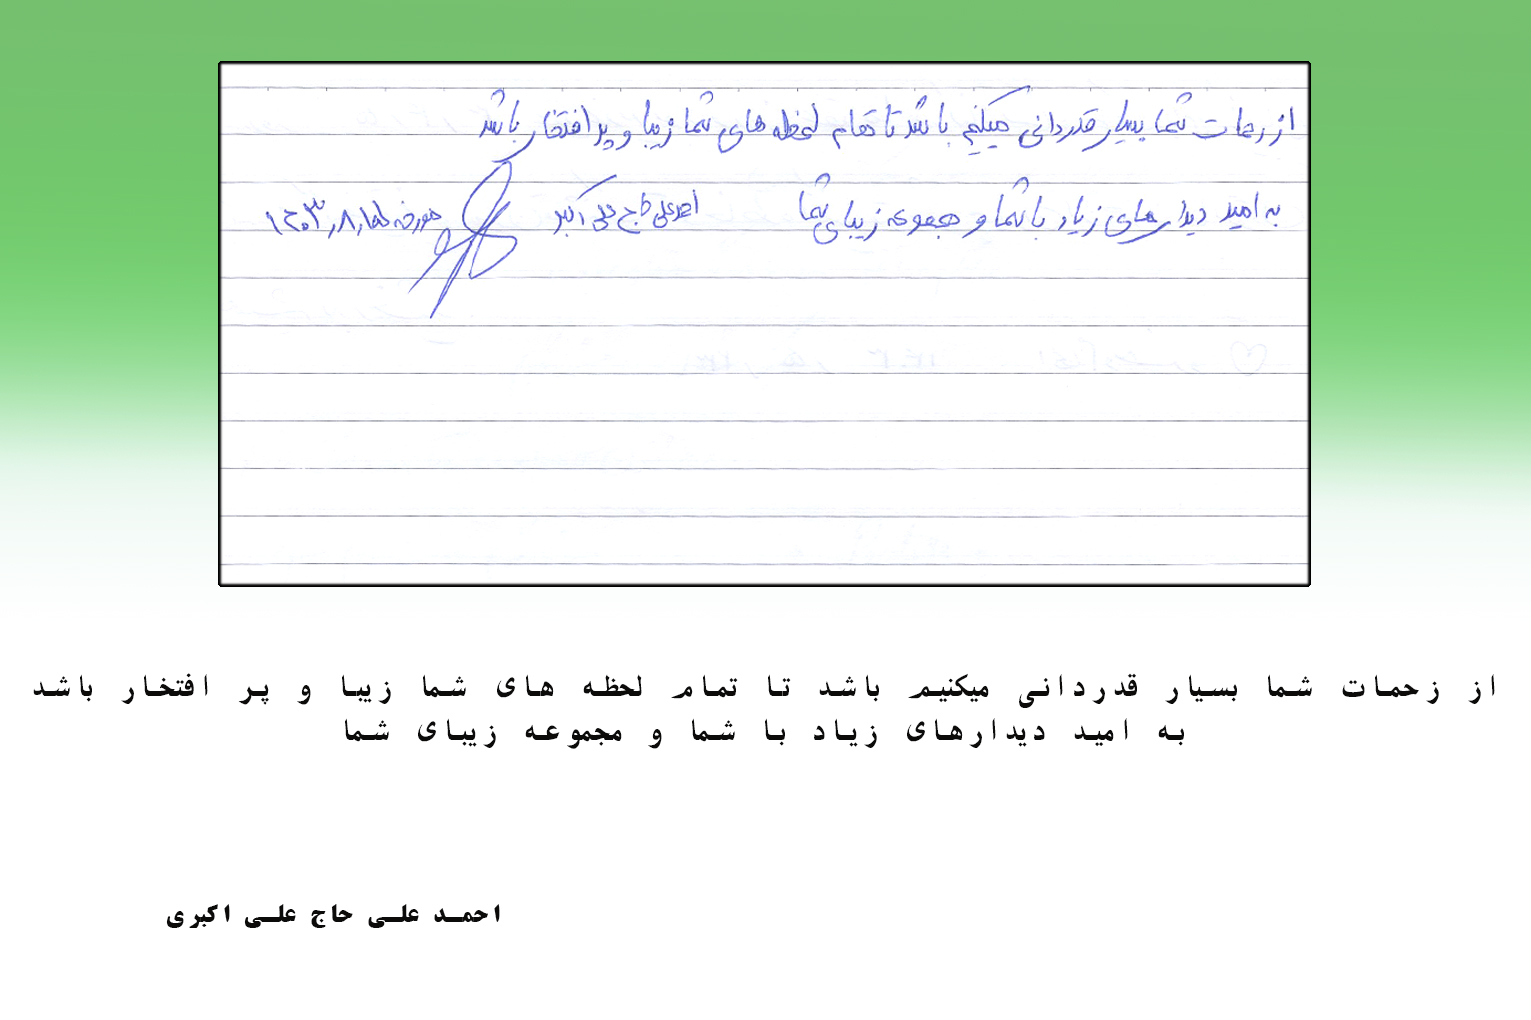 از زحمات شما بسیار قدردانی میکنیم باشد تا تمام لحظه های شما زیبا و پر افتخار باشد
به امید دیدارهای زیاد با شما و مجموعه زیبای شما احمدعلی حاج علی اکبر مورخه
از زحمات شما بسیار قدردانی میکنیم باشد تا تمام لحظه های شما زیبا و پر افتخار باشد
به امید دیدارهای زیاد با شما و مجموعه زیبای شما
احمد علی حاج علی اکبری